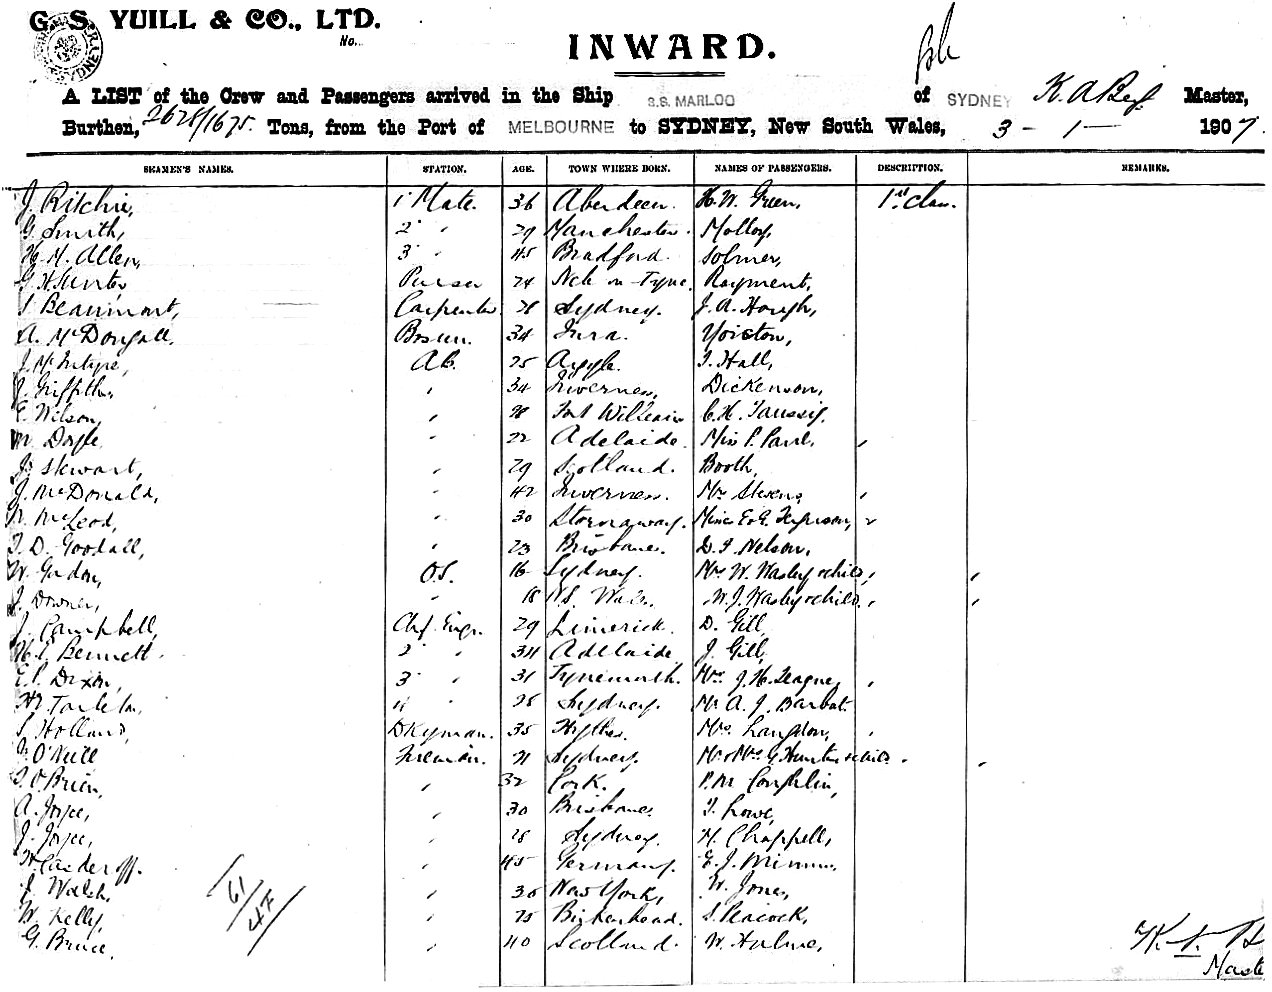 G. S. YUILL & CO., LTD.
No.
INWARD.
A LIST of the Crew and Passengers arrived in the Ship S.S. MARLOO of SYDNEY Master,
Burthen, 2628/1675. Tons, from the Port of MELBOURNE to SYDNEY, New South Wales, 3 - 1 - 1907.
SEAMEN'S NAMES. STATION. AGE. TOWN WHERE BORN. NAMES OF PASSENGERS. DESCRIPTION. REMARKS.
J. Ritchie, 1 Mate. 36 Aberdeen. H. W. Green, 1st Class.
G. Smith, 2 " 29 Manchester. Molloy,
H. M. Allen, 3 " 45 Bradford. Solmer,
G. Hunter Purser 24 Ncle on Tyne. Rayment,
S. Beaumont, Carpenter Sydney. J. A. Hough,
A. McDougall, Bosun. 34 Jura. Yoiston,
J. McIntyre, AB. 25 Argyle. T. Hall,
J. Griffiths, " 34 Inverness, Dickenson,
E. Wilson, " 28 Fort William C. H. Taussig,
M. Doyle " 22 Adelaide. Miss P. Paul, "
J. Stewart, " 29 Scotland. Booth,
J. McDonald, " 42 Inverness. Mrs Stevens, "
N. McLeod, " 30 Stornaway. Misses E & E. Ferguson, "
T. D. Goodall, " 23 Brisbane. D. J. Nelson,
W. Gordon, O.S. 16 Sydney. Mrs W. Wasley & child, " "
J. Downer, " 18 N.S. Wales. W. J. Wasley & child. " "
J. Campbell, Chf. Engr. 29 Limerick. D. Gill,
H. C. Bennett. 2 " 34 Adelaide J. Gill,
E. P. Dixon, 3 " 31 Tynemouth. Mrs. J. H. Teague, "
Tarleton, 4 " 28 Sydney. Mr A. J. Barbat.
S. Holland, Dkyman. 35 Hythe. Mrs Langdon, "
O'Neill Fireman. 21 Sydney. Mr & Mrs G. Hunter & child. " "
T. O'Brien, " 32 Cork. P. M. Coughlin,
A. Joyce, " 30 Brisbane. T. Lowe,
J. Joyce, " 28 Sydney. H. Chappell,
" 45 Germany. E. J.
J. Walsh, " 30 New York, W. Jones,
W. Kelly, " 25 Birkenhead. S. Peacock,
G. Bruce. " 40 Scotland. W. Hulme,
61/47
K. A. B
Maste